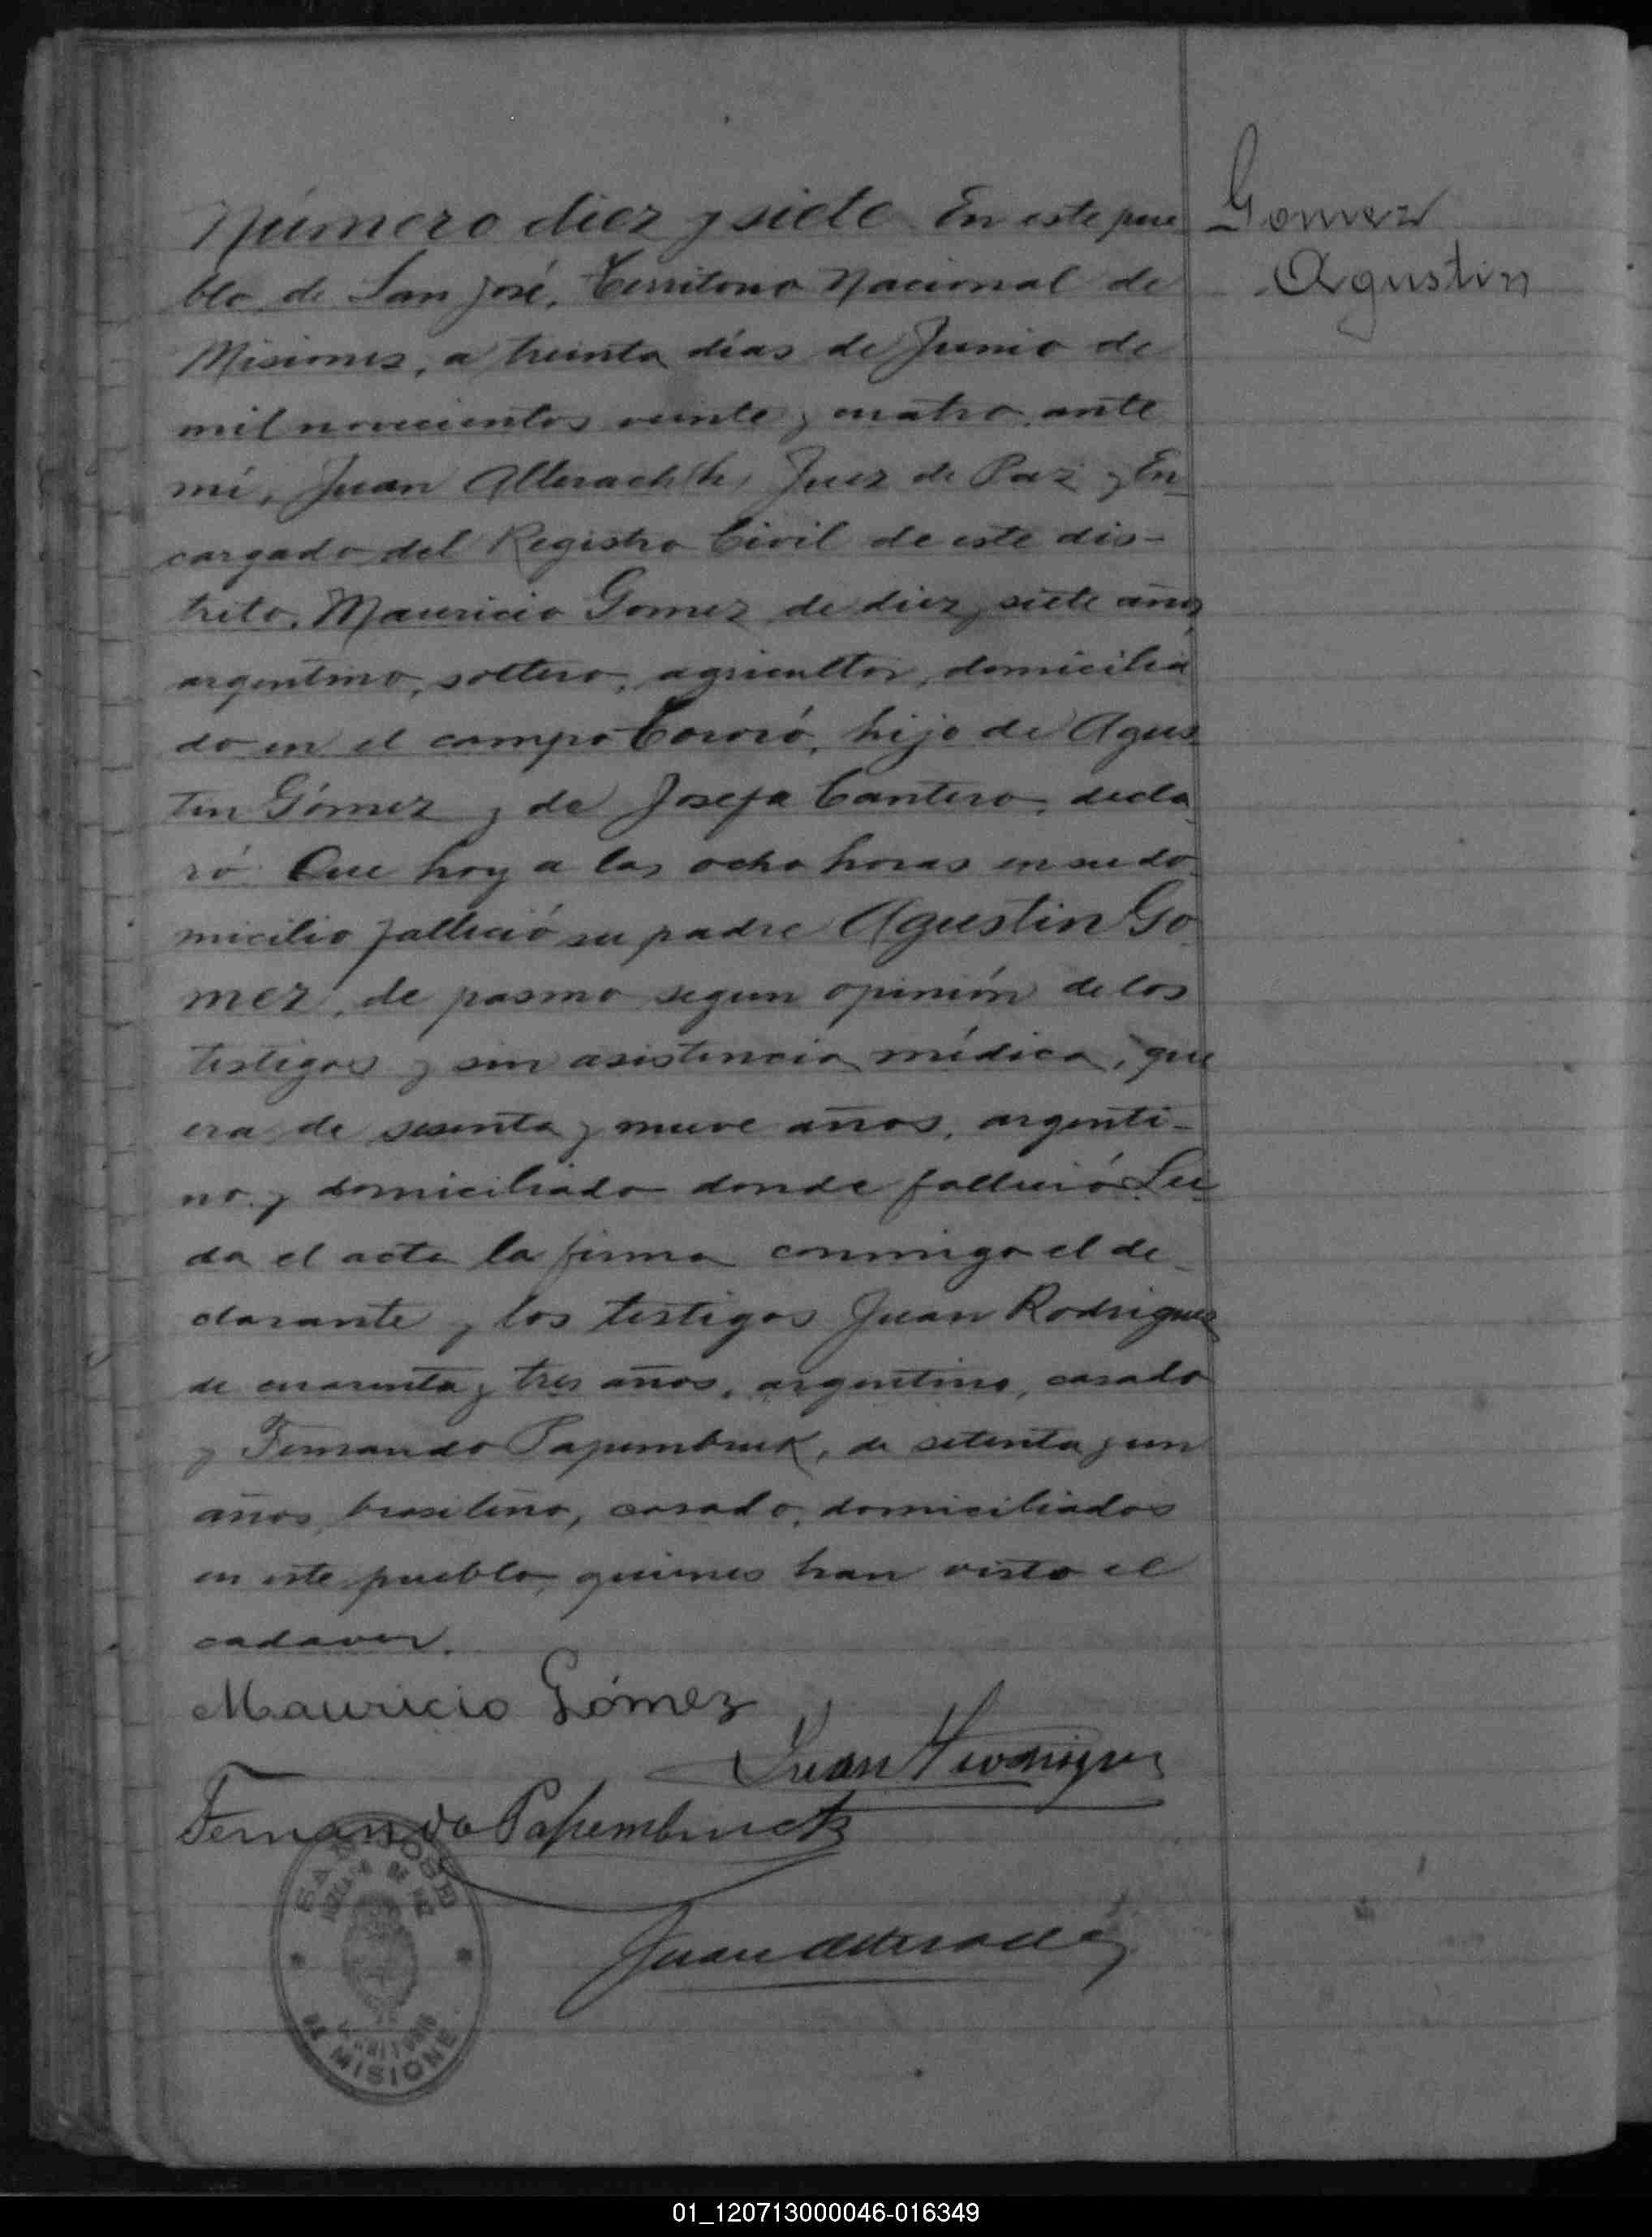 Número diez y siete En este pue
Gomez
Agustin
blo de San José, Territorio Nacional de
Misiones, a treinta días de Junio de
mil novecientos veinte y cuatro, ante
mí, Juan Alterach (h) Juez de Paz y En
cargado del Registro Civil de este dis-
trito, Mauricio Gomez de diez y siete años
argentino, soltero, agricultor, domicilia
do en el campo Tororó, hijo de Agus
tin Gómez y de Josefa Cantero, decla
ró: Que hoy a las ocho horas en su do
micilio falleció su padre Agustin Go
mez, de pasmo segun opinión de los
testigos y sin asistencia médica, que
era de sesenta y nueve años, argenti-
no y domiciliado donde falleció. Lei
da el acta la firma conmigo el de
clarante y los testigos Juan Rodriguez
de cuarenta y tres años, argentino, casado
y Fernando Papembruk, de setenta y un
años, brasileño, casado, domiciliados
en este pueblo, quienes han visto el
cadaver.
Mauricio Gómez
Juan Rodriguez
Fernando Papembruck
Juan Alterach
SAN JOSE
JUZGADO DE PAZ
TERRITORIO
DE MISIONE
01_120713000046-016349